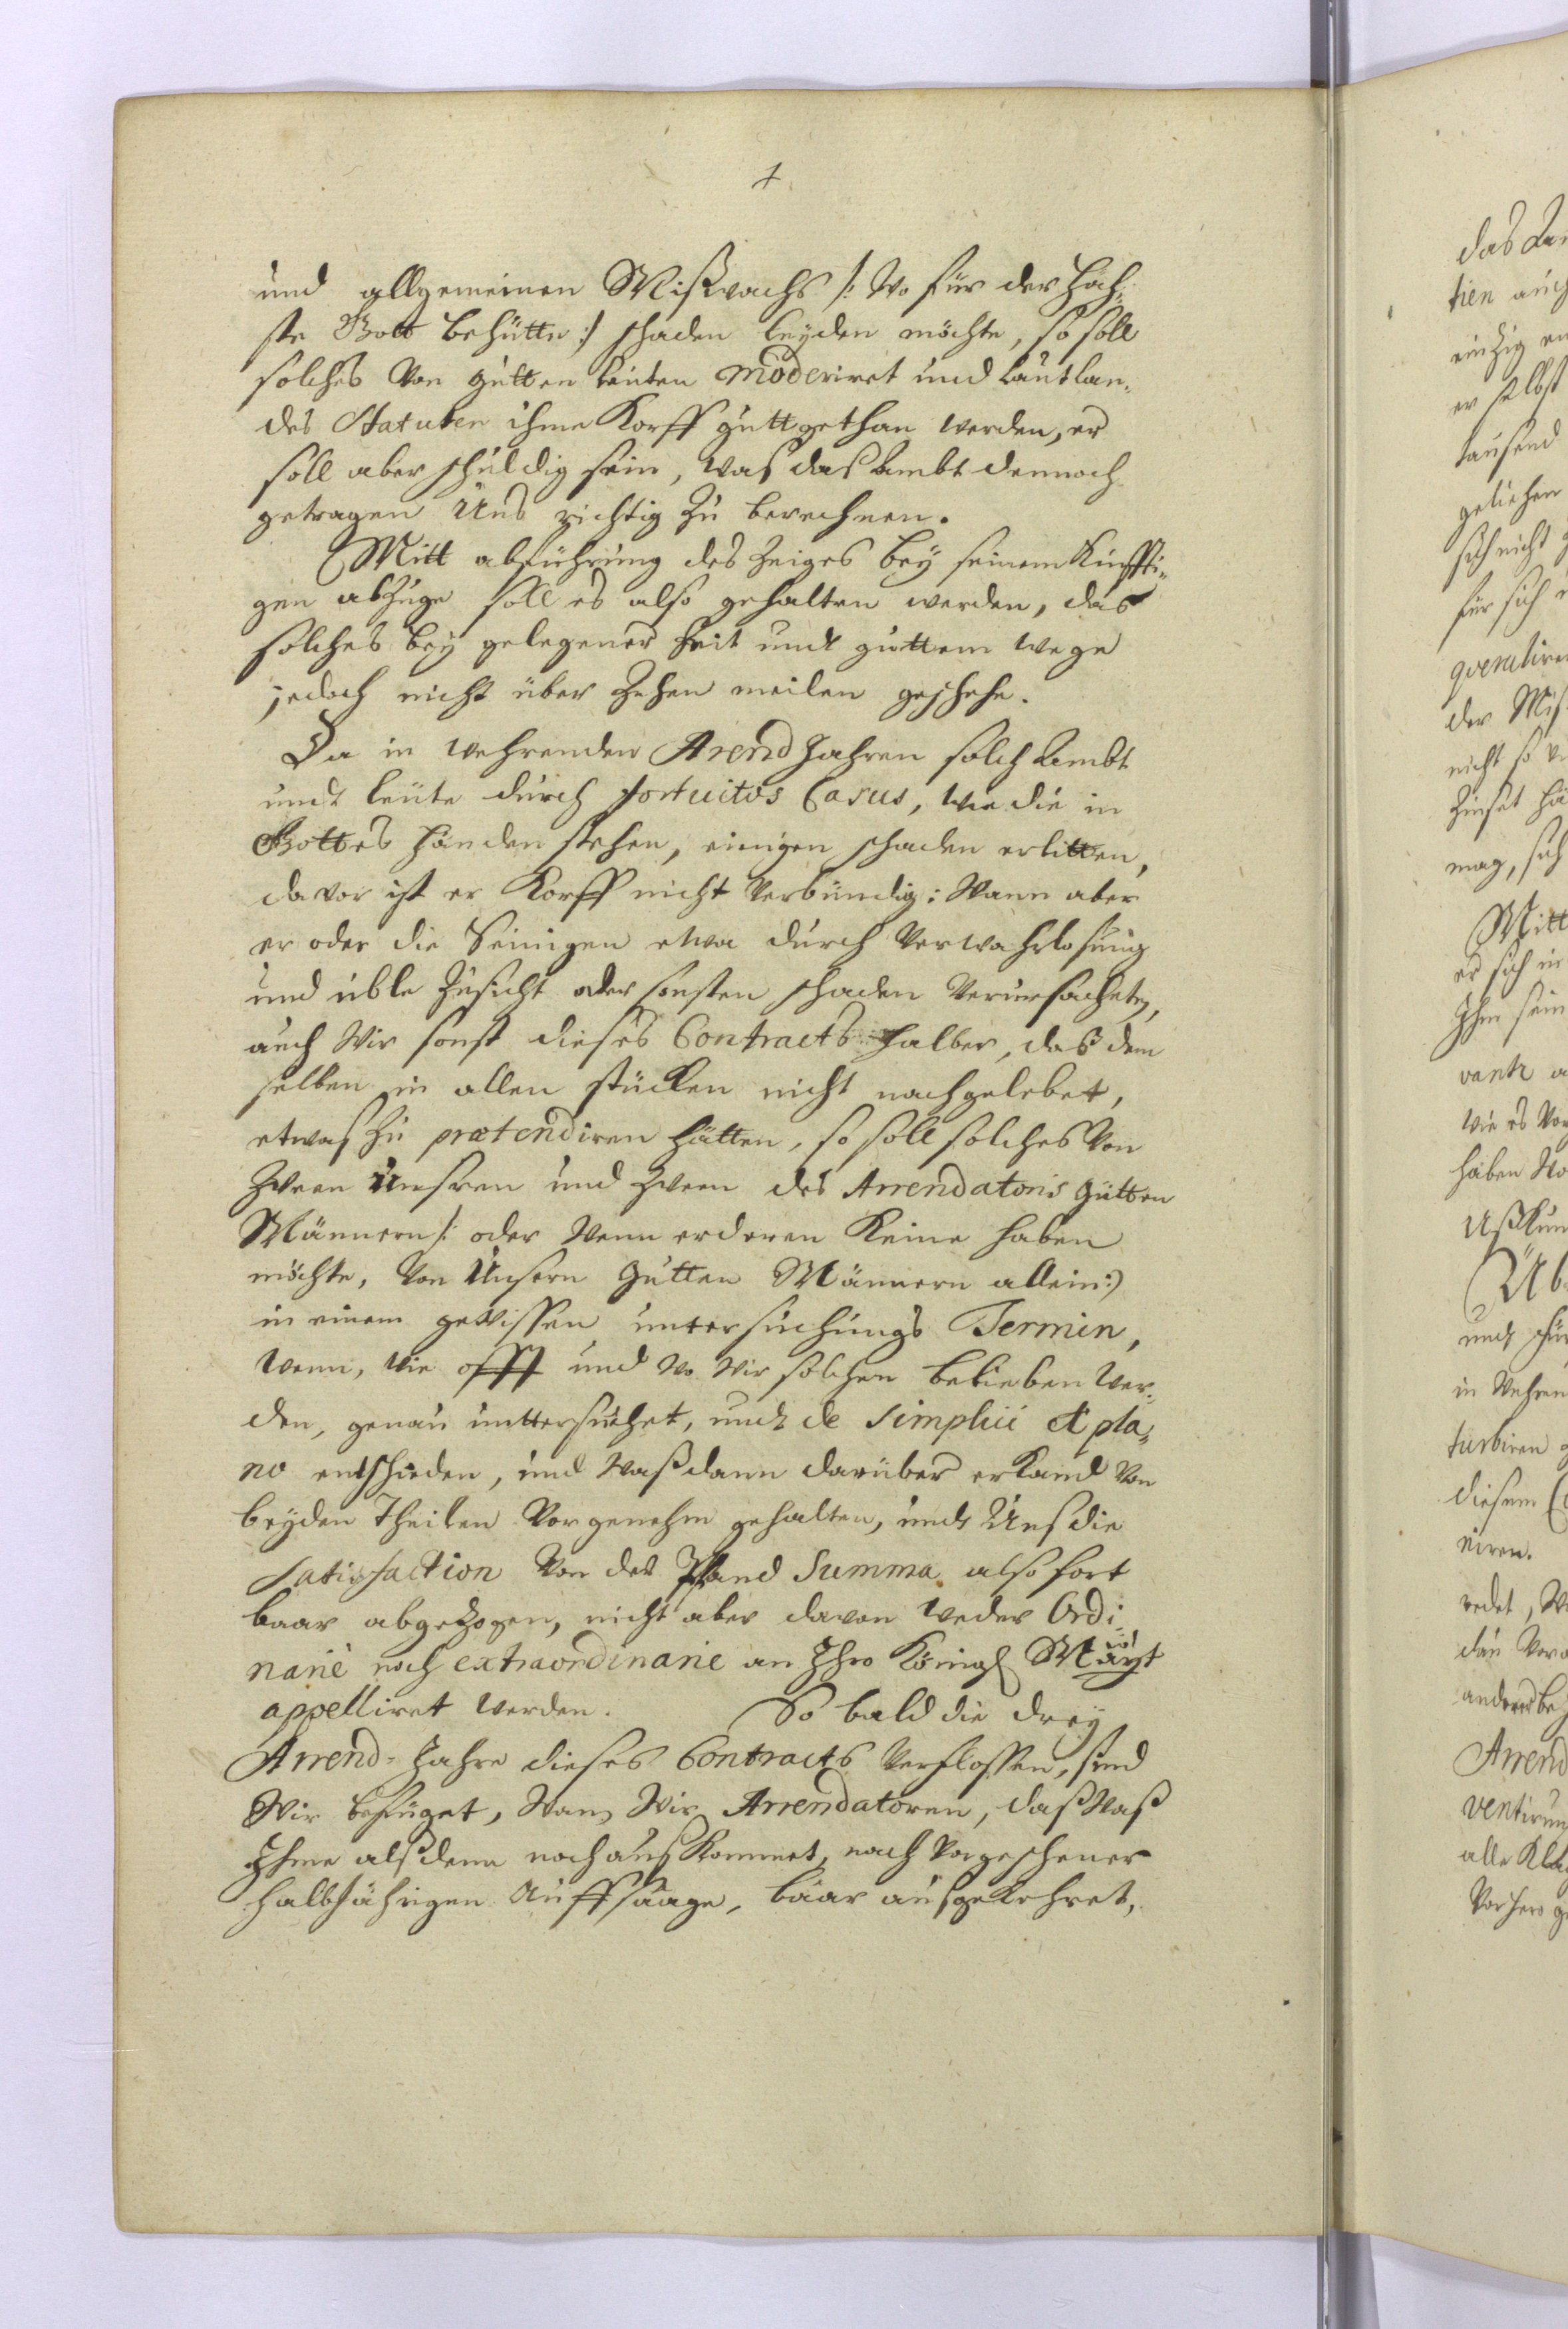 und allgemeinen Mißwachs /: Wo für der Höch„
ste Gott behütte :/ schaden leyden möchte, so soll
solches Von gutten leuten moderiret und Laut lan„
des Statuten ihme Korff gutt gethan werden, er
soll aber schuldig sein, was das Ambt dennoch
getragen Uns richtig zu berechnen.
Mitt abführung des Zeiges bey seinem Künffti„
gen abzuge soll es also gehalten werden, das
solches bey gelegener Zeit undt guttem wege
jedoch nicht über Zehen meilen geschehe.
Da in wehrenden Arend Jahren solch Ambt
undt leüte durch fortuitos Casus, wie die in
Gottes Händen stehen, einigen schaden erlitten,
davor ist er Korff nicht Verbündig: Wann aber
er oder die Seinigen etwa durch Verwahrlosung
und üble Zusicht oder sonsten schaden Verursacheten,
auch Wir sonst dieses Contracts halber, das dem
selben in allen stücken nicht nachgelebet,
etwas zu prætendiren hätten, so soll solches Von
Zween Unsren und Zween des Arrendatoris gutten
Männern /: oder Wenn er deren Keine haben
möchte, Von Unsern gutten Männern allein :)
in einem gewissen untersuchungs Termin,
Wenn, Wie offt und Wo Wir solchen belieben Wer„
den, genau unttersuchet, undt de simplici et pla„
no entschieden, und Waß dann darüber erkand Von
beyden Theilen Vor genehm gehalten, undt Uns die
satisfaction Von der Pfand Summa also fort
baar abgezogen, nicht aber davon weder Ordi„
nariè noch extraordinariè an Ihro Königl Mayt
appelliret werden. So bald die drey
Arrend-Jahre dieses Contracts Verflossen, sind
Wir befuget, Wann Wir Arrendatoren, daß Waß
Ihme alßdenn noch aus Kommet, nach Vorgeschener
halbjährigen Auffsaage, baar ausgekehret,